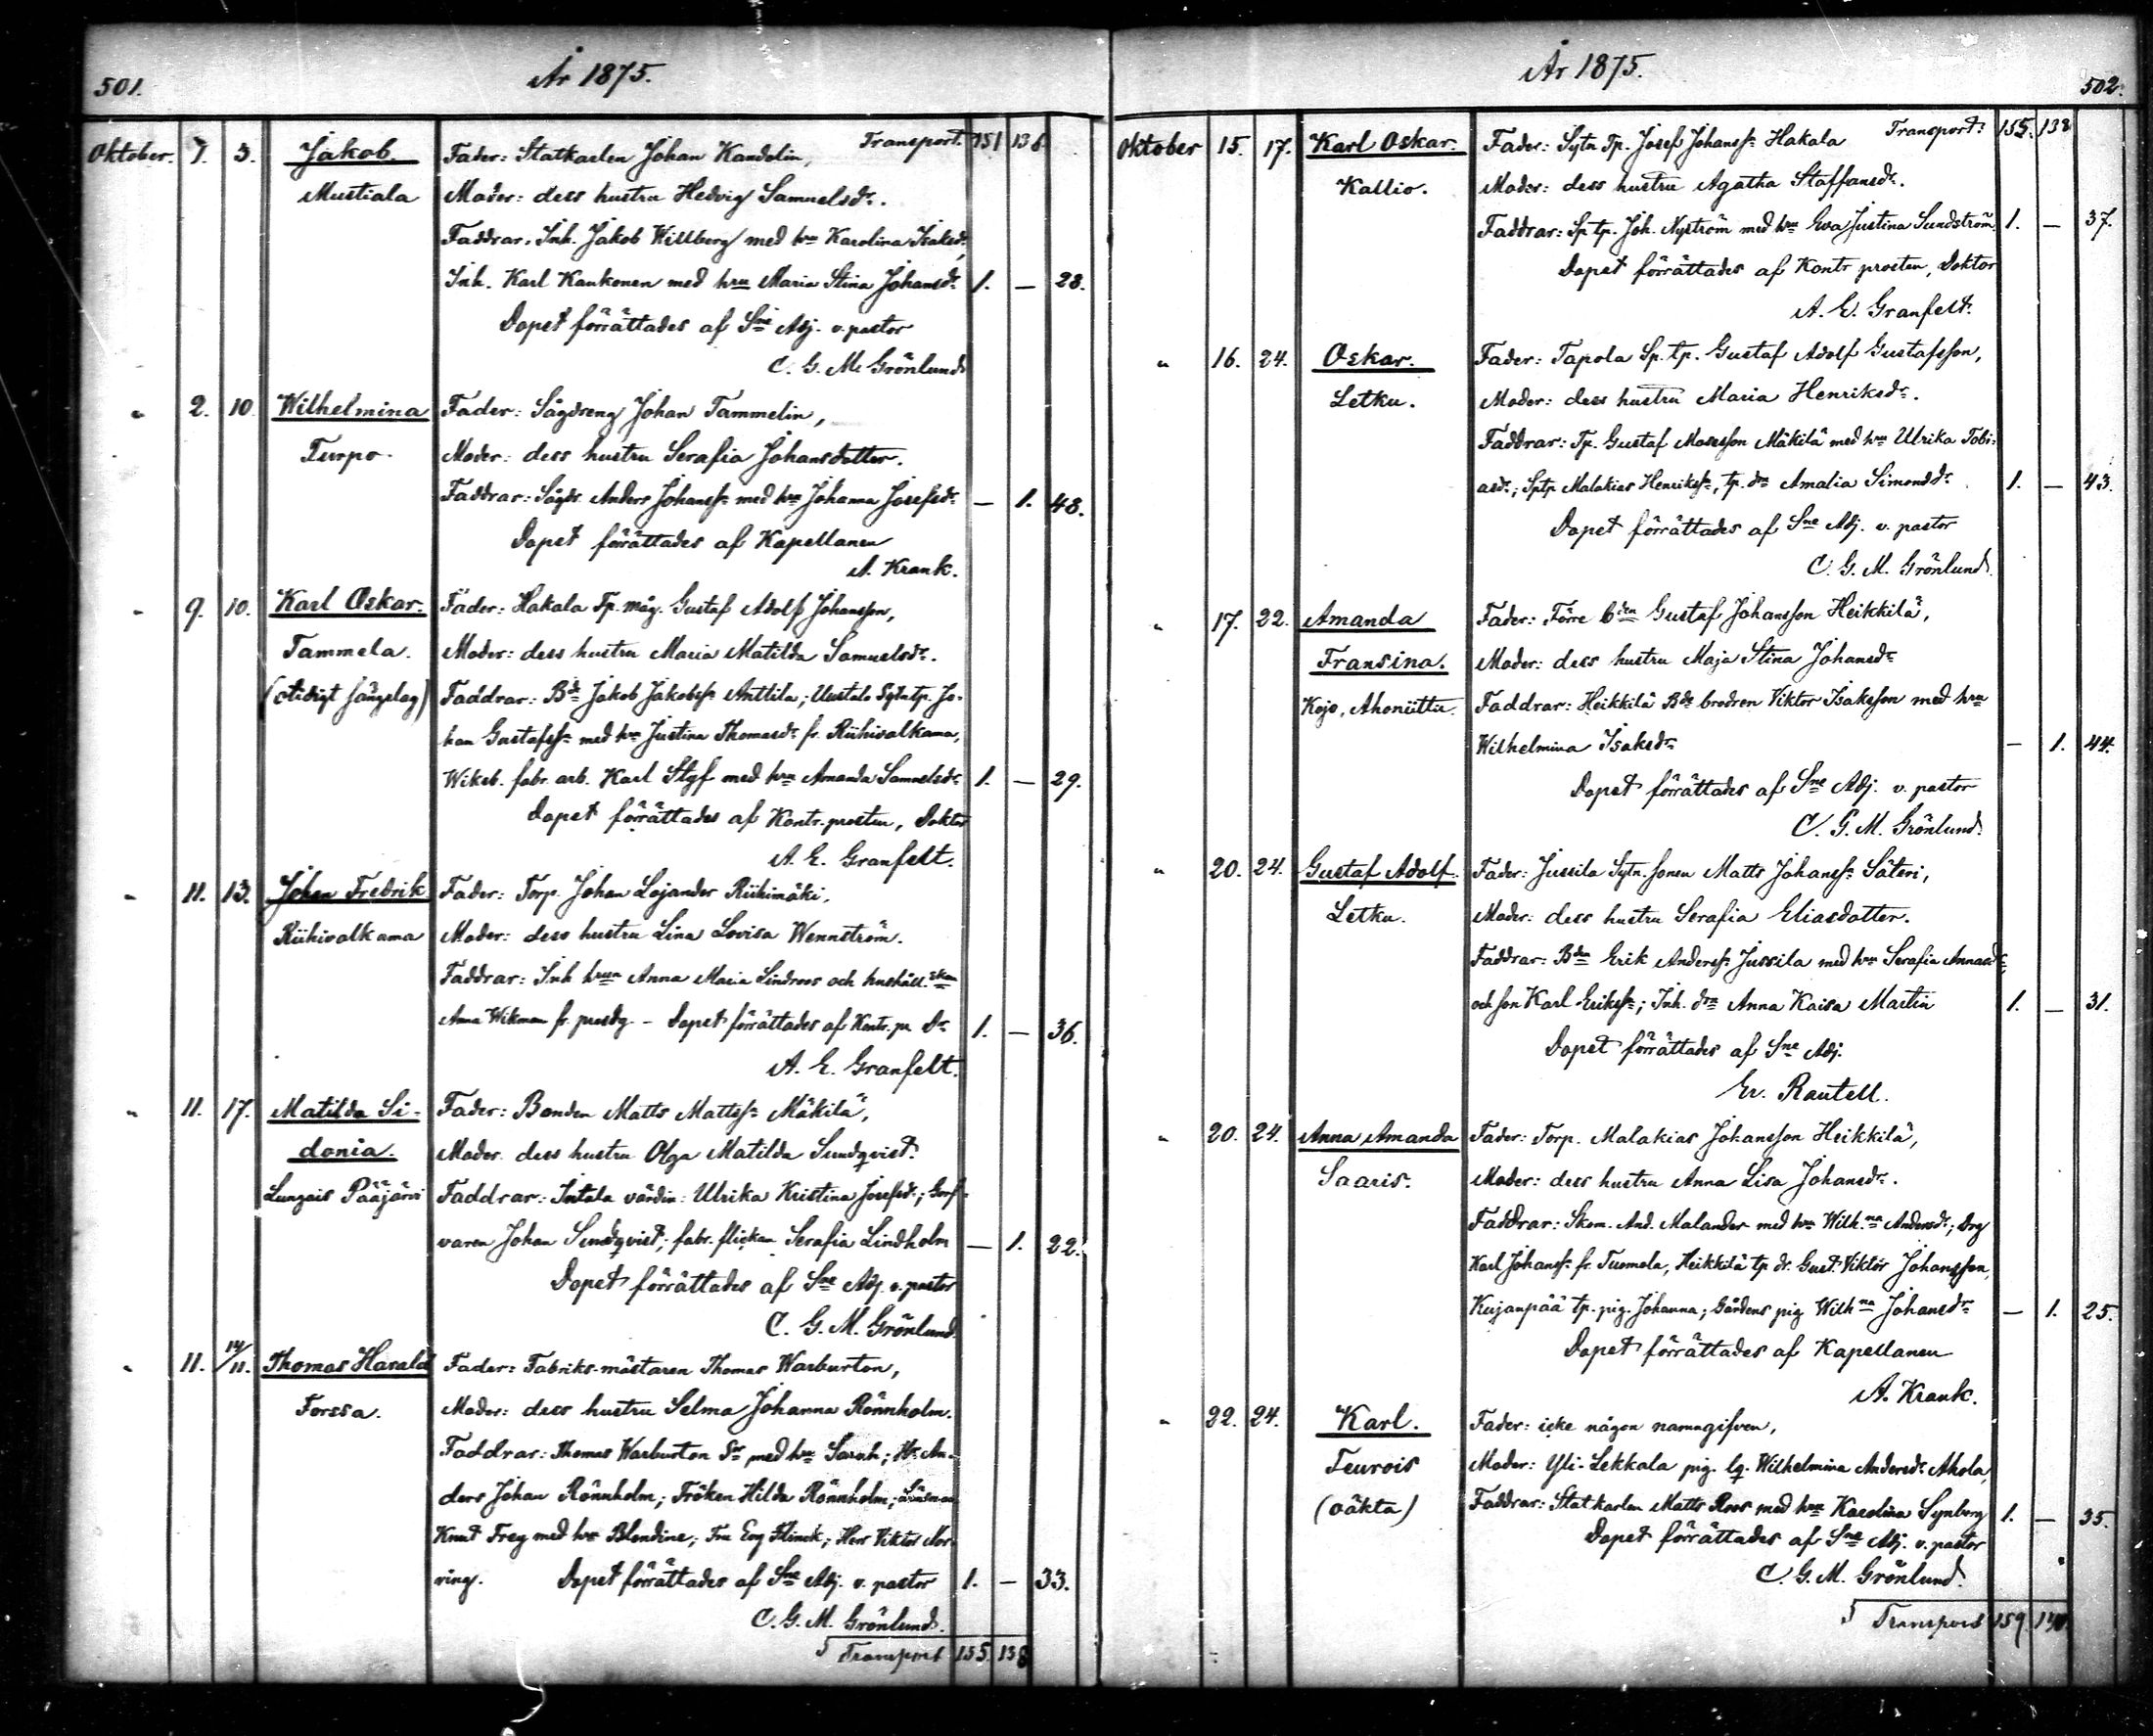 501.
År 1875.
Transport. 151 136.
Oktober. 7. 3. Jakob. Fader: Statkarlen Johan Kandolin,
Mustiala Moder: dess hustru Hedvig Samuelsdr.
Faddrar: Inh. Jakob Willberg med hru Karolina Isaksdr,
Inh. Karl Kaukonen med hru Maria Stina Johansdr. 1. — 28.
Dopet förrättades af Sne Adj. v. pastor
C. G. M. Grönlund
" 2. 10. Wilhelmina Fader: Sågdreng Johan Tammelin,
Turpo. Moder: dess hustru Serafia Johansdotter.
Faddrar: Sågdr. Anders Johanss. med hru Johanna Josefsdr. — 1. 48.
Dopet förrättades af Kapellanen
A. Krank.
" 9. 10. Karl Oskar. Fader: Hakala Tp. måg. Gustaf Adolf Johansson,
Tammela. Moder: dess hustru Maria Matilda Samuelsdr.
Faddrar: Bdn Jakob Jakobss. Anttila; Uustalo Sytn tp. Jo-
han Gustafss. med hru Justina Thomasdr. fr. Riihivalkama,
Wiksb. fabr. arb. Karl Slyf med hru Amanda Samuelsdr. 1. — 29.
Dopet förrättades af Kontr. prosten, Doktor
A. E. Granfelt.
" 11. 13. Johan Fredrik Fader: Torp. Johan Lojander Riihimäki,
Riihivalkama Moder: dess hustru Lina Lovisa Wennström.
Faddrar: Inh hrun Anna Maria Lindroos och hushåll.skan
Anna Wikman fr. prostg. — Dopet förrättades af Kontr. pr. Dr. 1. — 36.
A. E. Granfelt.
" 11. 17. Matilda Si- Fader: Bonden Matts Mattss. Mäkilä,
donia. Moder. dess hustru Olga Matilda Sundqvist.
Lungais Pääjärvi Faddrar: Intala värdin: Ulrika Kristina Josefsdr.; Gorf-
varen Johan Sundqvist; fabr. flickan Serafia Lindholm — 1. 22.
Dopet förrättades af Sne Adj. v. pastor
C. G. M. Grönlund.
" 11. 14/11. Thomas Harald Fader: Fabriks-mästaren Thomas Warburton,
Forssa. Moder: dess hustru Selma Johanna Rönnholm.
Faddrar: Thomas Warburton Sr med hru Sarah; Hr. An-
ders Johan Rönnholm; Fröken Hilda Rönnholm; Länsman
Knut Frey med hru Blondine; Fru Evy Flinck; Herr Viktor Nor-
ring. Dopet förrättades af Sne Adj. v. pastor 1. — 33.
C. G. M. Grönlund.
Transport 155. 138
År 1875.
502.
Transport: 155. 138
Oktober 15. 17. Karl Oskar. Fader: Sytn Tp. Josef Johanss. Hakala
Kallio. Moder: dess hustru Agatha Staffansdr.
Faddrar: Sp tp. Joh. Nyström med hru Eva Justina Sundström. 1. — 37.
Dopet förrättades af Kontr prosten, Doktor
A. E. Granfelt.
" 16. 24. Oskar. Fader: Tapola Sp. tp. Gustaf Adolf Gustafsson,
Letku. Moder: dess hustru Maria Henriksdr.
Faddrar: Tp. Gustaf Mosesson Mäkilä med hru Ulrika Tobi-
asdr.; Sptp. Malakias Henrikss., tp. drn Amalia Simonsdr. 1. — 43.
Dopet förrättades af Sne Adj. v. pastor
C. G. M. Grönlund.
" 17. 22. Amanda Fader: Förre bden Gustaf Johansson Heikkilä,
Fransina. Moder: dess hustru Maja Stina Johansdr.
Kojo, Ahoniittu. Faddrar: Heikkilä Bds brodren Viktor Isaksson med hru
Wilhelmina Isaksdr. — 1. 44.
Dopet förrättades af Sne Adj. v. pastor
C. G. M. Grönlund.
" 20. 24. Gustaf Adolf. Fader: Jussila Sytn. sonen Matts Johanss. Säteri,
Letku. Moder: dess hustru Serafia Eliasdotter.
Faddrar: Bdn Erik Anderss. Jussila med hru Serafia Annasdr
och son Karl Erikss.; Inh. drn Anna Kaisa Martin 1. — 31.
Dopet förrättades af Sne Adj.
Er. Rautell.
" 20. 24. Anna Amanda Fader: Torp. Malakias Johansson Heikkilä,
Saaris. Moder: dess hustru Anna Lisa Johansdr.
Faddrar: Skom. And. Malander med hru Wilh.na Andersdr.; Drg
Karl Johanss. fr. Tuomola, Heikkilä tp dr. Gust. Viktor Johansson,
Kujanpää tp. pig. Johanna; Gårdens pig Wilh.na Johansdr. — 1. 25.
Dopet förrättades af Kapellanen
A. Krank.
" 22. 24. Karl. Fader: icke någon namngifven,
Teurois Moder: Yli-Lekkala pig. lq. Wilhelmina Andersdr. Ahola,
(oäkta) Faddrar: Statkarlen Matts Roos med hru Karolina Synberg 1. — 35.
Dopet förrättades af Sne Adj. v. pastor
C. G. M. Grönlund.
Transport 159. 140